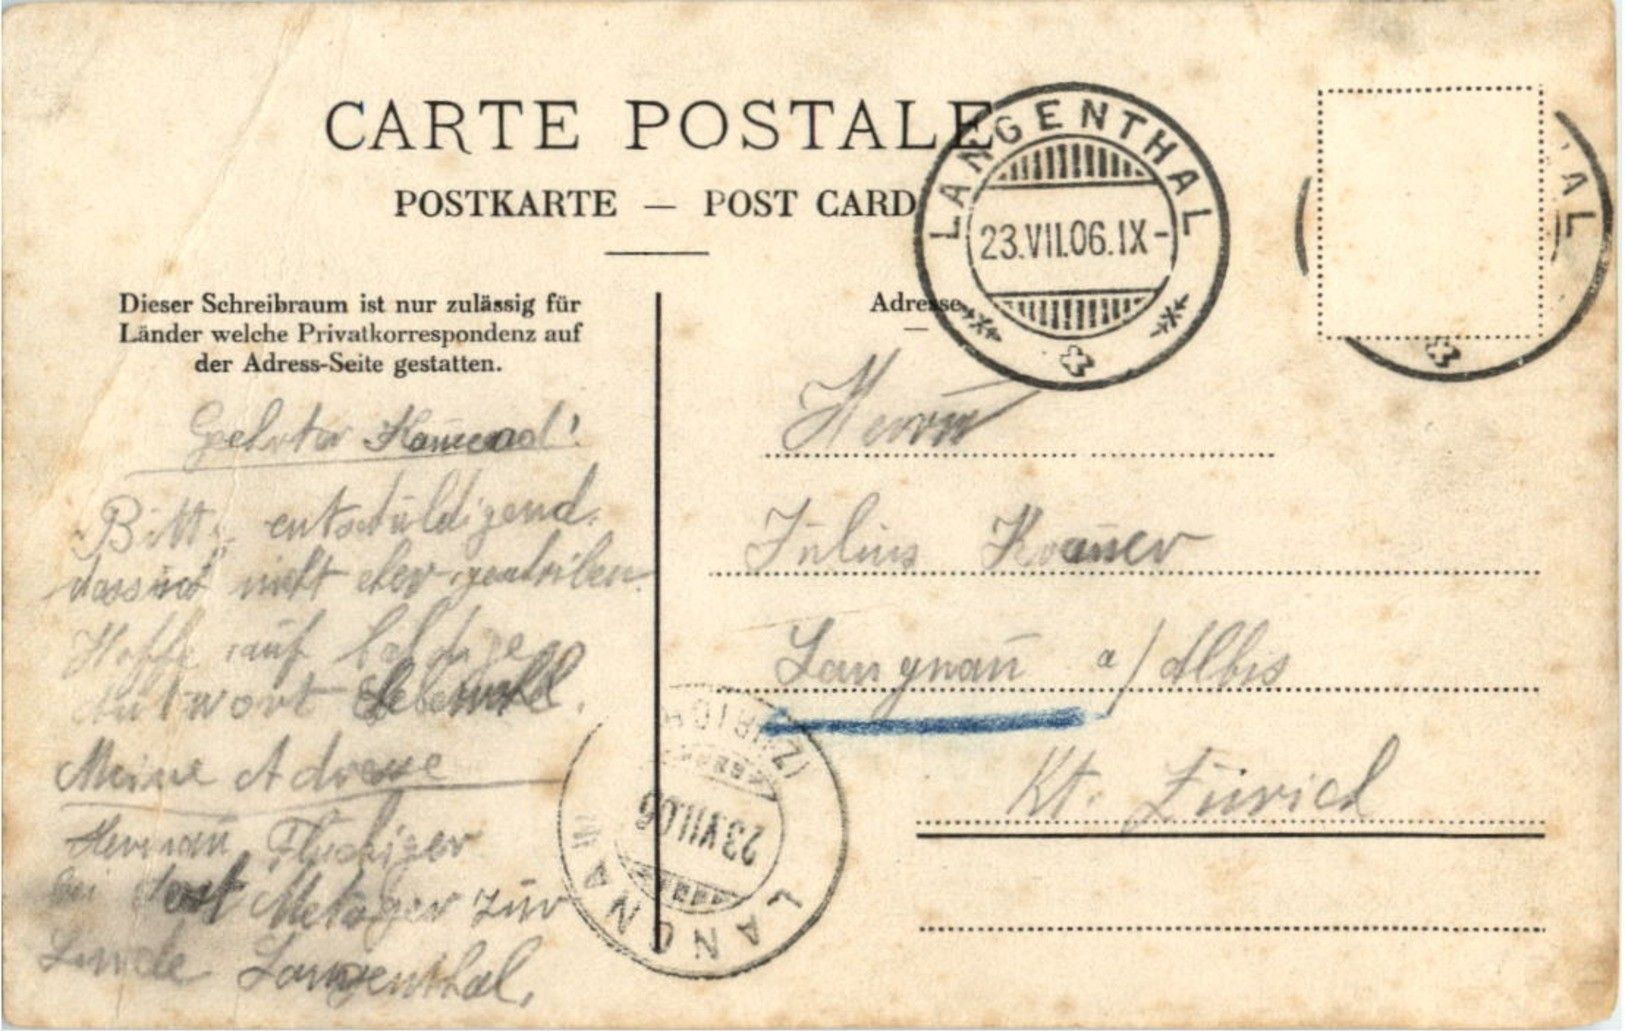 CARTE POSTALE
POSTKARTE — POST CARD
LANGENTHAL
23.VII.06.IX-
AL
Dieser Schreibraum ist nur zulässig für
Länder welche Privatkorrespondenz auf
der Adress-Seite gestatten.
Adresse
Geehrter Kamerad!
Bitte entschuldigend.
dass nicht eher geschriben
Hoffe auf baldige
Antwort Lebewohl.
Meine Adresse
Herman Fluckiger
bei Metzger zur
Linde Langenthal.
Herrn
Julius Krauer
Langnau a/Albis
Kt. Zürich
LANGNAU
(ZÜRICH)
23.VII.06